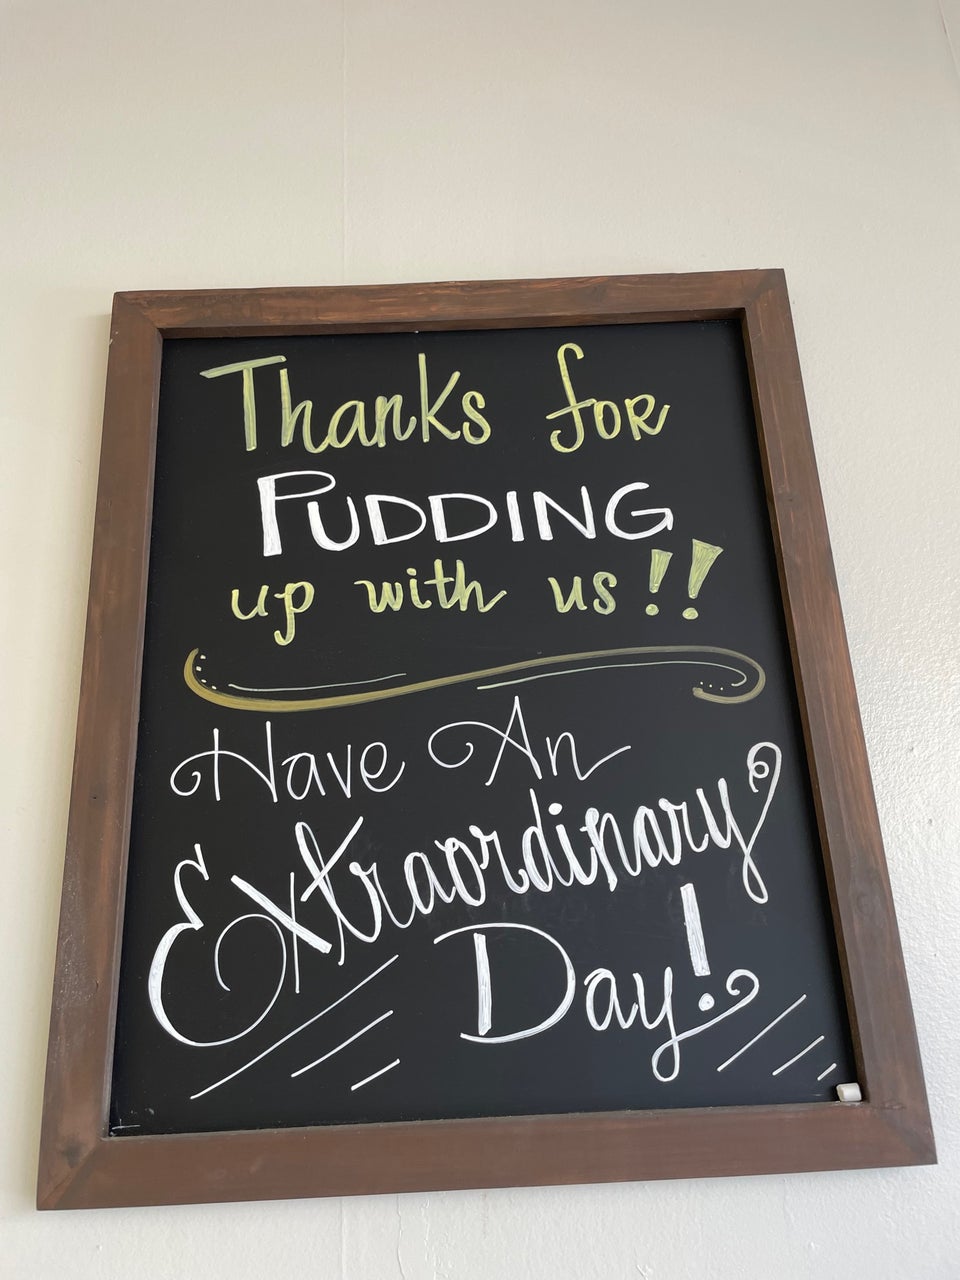 Thanks for
PUDDING
up with us!!
Have An
Extraordinary
Day!